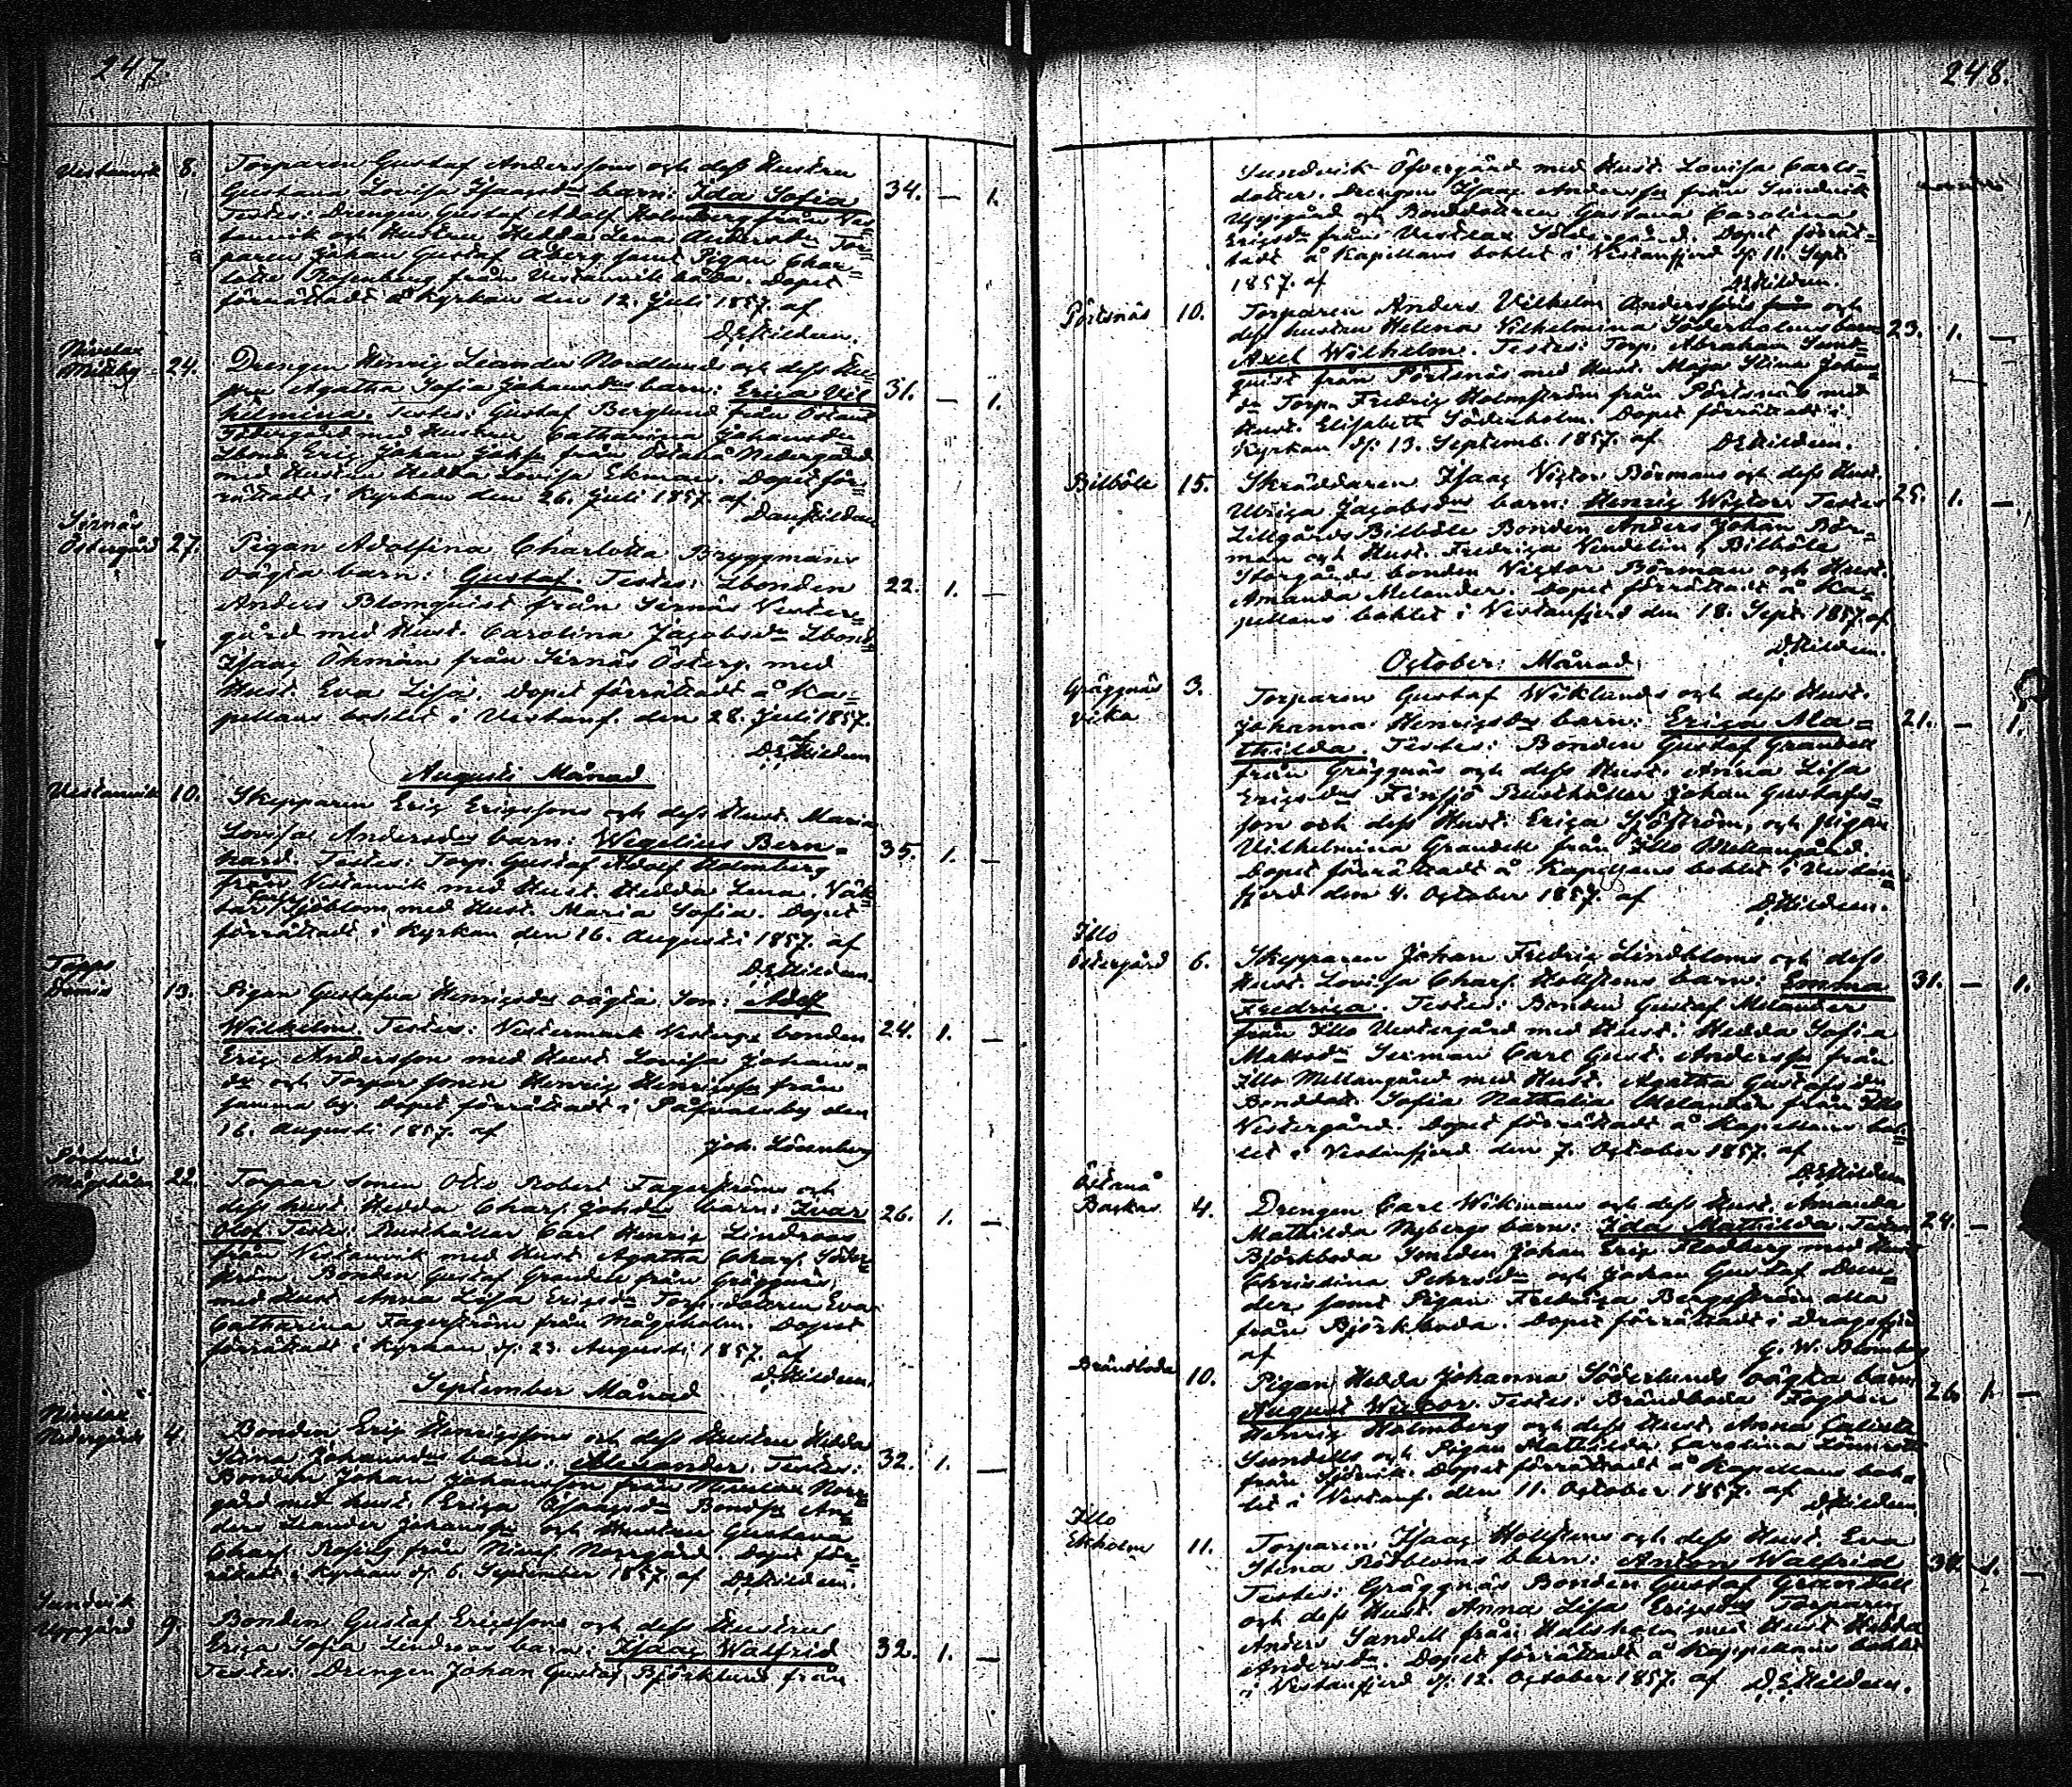 247.
Vestanvik 8. Torparen Gustaf Anderssons och dess Hustru
Gustava Lovisa Isaacsdrs barn: Ida Sofia 34. — 1.
Testes: Drengen Gustaf Adolf Holmberg från Ves=
tanvik och Hustru Hedda Lena Andersdr Tor=
paren Johan Gustaf Åberg samt Pigan Char=
lotte Rosenberg från Vestanvik båda. Dopet
förrättadt i Kyrkan den 12. Juli 1857. af
D.E. Hildeen.
Nivelax
24. Drengen Henric Leander Nordlunds och dess Hu=
stru Agatha Sofia Johansdrs barn: Erica Vil= 31. — 1.
helmina. Testes: Gustaf Berglund från Östanå
Södergård med Hustru Catharina Johansdr
Lbond Eric Johan Johss från Östanå Nedergård
med Hustru Hedda Lovisa Ekman. Dopet för=
rättadt i Kyrkan den 26. Juli 1857. af
Dan Hildeen
Sirnäs
Östergård 27. Pigan Adolfina Charlotta Bryggmans
oägta barn: Gustaf. Testes: Lbonden 22. 1. —
Anders Blomquist från Sirnäs Vester=
gård med Hust. Carolina Jacobsdr Lbond.
Isaac Öhman från Sirnäs Österg. med
Hust. Eva Lisa. Dopet förrättadt å Ka=
pellans bohlet i Vestanf. den 28. Juli 1857.
af
D.E. Hildeen
Augusti Månad
Vestanvik 10. Skepparen Eric Ericssons och dess Hust. Maria
Lovisa Andersdrs barn: Wegelius Bern= 35. 1. —
hard. Testes: Torp. Gustaf Adolf Holmberg
från Vestanvik med Hust. Hedda Lena. Väk=
tar Sjöblom med Hust. Maria Sofia. Dopet
förrättadt i Kyrkan den 16. Augusti 1857. af
D.E. Hildeen.
13. Pigan Gustafva Henricsdrs oägta Son: Adolf
Wilhelm. Testes: Vestermark Vesterg. bonden 24. 1. —
Eric Andersson med Hust. Lovisa Johans=
dr och Torpar sonen Henric Henricss från
samma by. Dopet förrättadt i Påfvalsby den
16. Augusti 1857. af
Joh. Lönnberg
22. Torpar Sonen Otto Robert Fagerströms och
dess hust. Hedda Charl. Johsdrs barn: Ivar 26. 1. —
Olof. Testes: Rusthållar Carl Henric Lindroos
från Vestanvik med Hust. Agatha Charl. Söder=
ström. Bonden Gustaf Grandell från Gräggnäs
med Hust. Anna Lisa Ericsdr Torp. dotteren Eva
Catharina Fagerström från Mågsholm. Dopet
förrättadt i Kyrkan d. 23. Augusti 1857. af
D. Hildeen.
September Månad
Nivelax
Nedergård 4. Bonden Eric Henricssons och dess Hustru Hedda
Stina Johansdrs barn: Alexander. Testes: 32. 1. —
Bonden Johan Johansson från Nivelax Norr=
gård med hust. Erica Isaacsdr Bonds. An=
ders Leander Johanss och Hustru Gustava
Charl. från Nivel. Norrgård. Dopet för=
rättadt i Kyrkan d. 6. September 1857. af D.E. Hildeen.
Sundvik
Uppgård 9. Bonden Gustaf Ericssons och dess Hustrus
Erica Sofia Lindroos barn: Isaac Walfrid 32. 1. —
Testes: Drengen Johan Gustaf Björklund från
248.
Sundvik Öfvergård med Hust. Lovisa Carls=
dotter. Drengen Isaac Anderss från Sundvik
Uppgård och Bonddotteren Gustava Carolina
Ericsdr från Vestlax Södergård. Dopet förrät=
tadt å Kapellans bohlet i Vestanfjerd d. 11. Sept.
1857. af D.E. Hildeen.
Pörtsnäs 10. Torparen Anders Vilhelm Anderssons och
dess hustru Helena Vilhelmina Söderholms barn 23. 1. —
Axel Wilhelm. Testes: Torp. Abraham Sund=
quist från Pörtsnäs med Hust. Maja Stina Johans=
dr Torp. Fredric Holmström från Pörtsnäs med
Hust. Elisabeth Söderholm. Dopet förrättadt i
Kyrkan d. 13. Septemb. 1857. af D.E. Hildeen.
Bilböle 15. Skräddaren Isaac Victor Börmans och dess Hust.
Ulrica Jacobsdrs barn: Henric Wictor. Testes 25. 1. —
Lillgårds Bilböle Bonden Anders Johan Bör=
man och Hust. Fredrica Vendelin, Bilböle
Storgårds bonden Victor Börman och Hust.
Amanda Melander. Dopet förrättadt å Ka=
pellans bohlet i Vestanfjerd den 18. Sept. 1857. af
D. Hildeen.
October Månad
Gräggnäs
vika 3. Torparen Gustaf Wiklunds och dess Hust.
Johanna Henricsdrs barn: Erica Ma= 21. — 1.
thilda. Testes: Bonden Gustaf Grandell
från Gräggnäs och dess Hust. Anna Lisa
Ericsdr Finsjö Rusthållar Johan Gustafs=
son och dess Hust. Erica Sjöström, och Pigan
Vilhelmina Grandell från Illo Mellangård.
Dopet förrättadt å Kapellans bohlet i Vestan=
fjerd den 4. October 1857. af
D. Hildeen.
Illo
Östergård 6. Skepparen Johan Fredric Lindbloms och dess
Hust. Lovisa Charl. Hollstens barn: Emma 31. — 1.
Fredrica. Testes: Bonden Gustaf Melander
från Illo Vestergård med Hust. Hedda Sofia
Mattsdr Seeman Carl Gust. Anderss från
Illo Mellangård med Hust. Agatha Gustafsdr
Bonddot. Sofia Nathalia Melander från Illo
Vestergård. Dopet förrättadt å Kapellans boh=
let i Vestanfjerd den 7. October 1857. af
D.E. Hildeen
Östanå
Backas 4. Drengen Carl Wikmans och dess Hust. Amanda
Mathilda Nybergs barn: Ida Mathilda. Testes 24. —
Björkboda Smeden Johan Eric Rodberg med Hust.
Christina Pehrsdr och Johan Gustaf
der, samt Pigan Fredrica Bergström alla
från Björkboda. Dopet förrättadt i Dragsfjerd
af G. W. Blomberg
Brändboda 10. Pigan Hedda Johanna Söderlunds oägta barn
August Wictor. Testes: Brändboda Fogden 26. 1. —
Henric Holmberg och dess Hust. Anna
Sundell och Pigan Mathilda Carolina Lönnroth
från Sjövik. Dopet förrättadt å Kapellans boh=
let i Vestanf. den 11. October 1857. af D. Hildeen
Illo
Ekholm 11. Torparen Isaac Hollstens och dess Hust. Eva
Stina Rotbloms barn: Anton Walfrid 34. 1. —
Testes: Gräggnäs Bonden Gustaf Grandell
och dess Hust. Anna Lisa Ericsdr Torparen
Anders Sandell från Halsholm med Hust. Hedda
Andersdr. Dopet förrättadt å Kapellans bohlet
i Vestanfjerd d. 12. October 1857. af D.E. Hildeen.